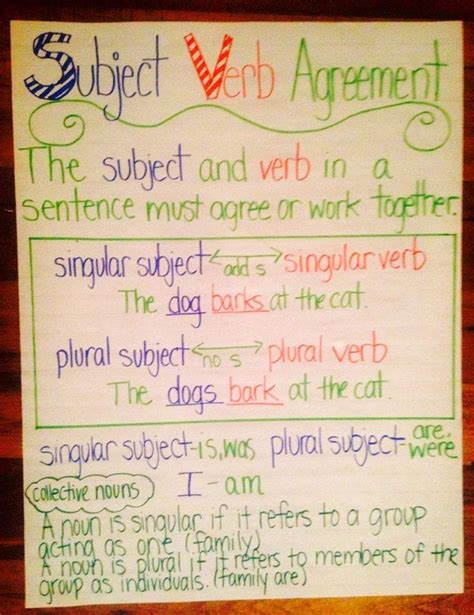 Subject Verb Agreement
The subject and verb in a
sentence must agree or work together.
singular subject <-add s-> singular verb
The dog barks at the cat.
plural subject <-no s-> plural verb
The dogs bark at the cat.
singular subject-is, was plural subject-are, were
collective nouns I-am
A noun is singular if it refers to a group
acting as one. (family)
A noun is plural if it refers to members of the
group as individuals. (family are)